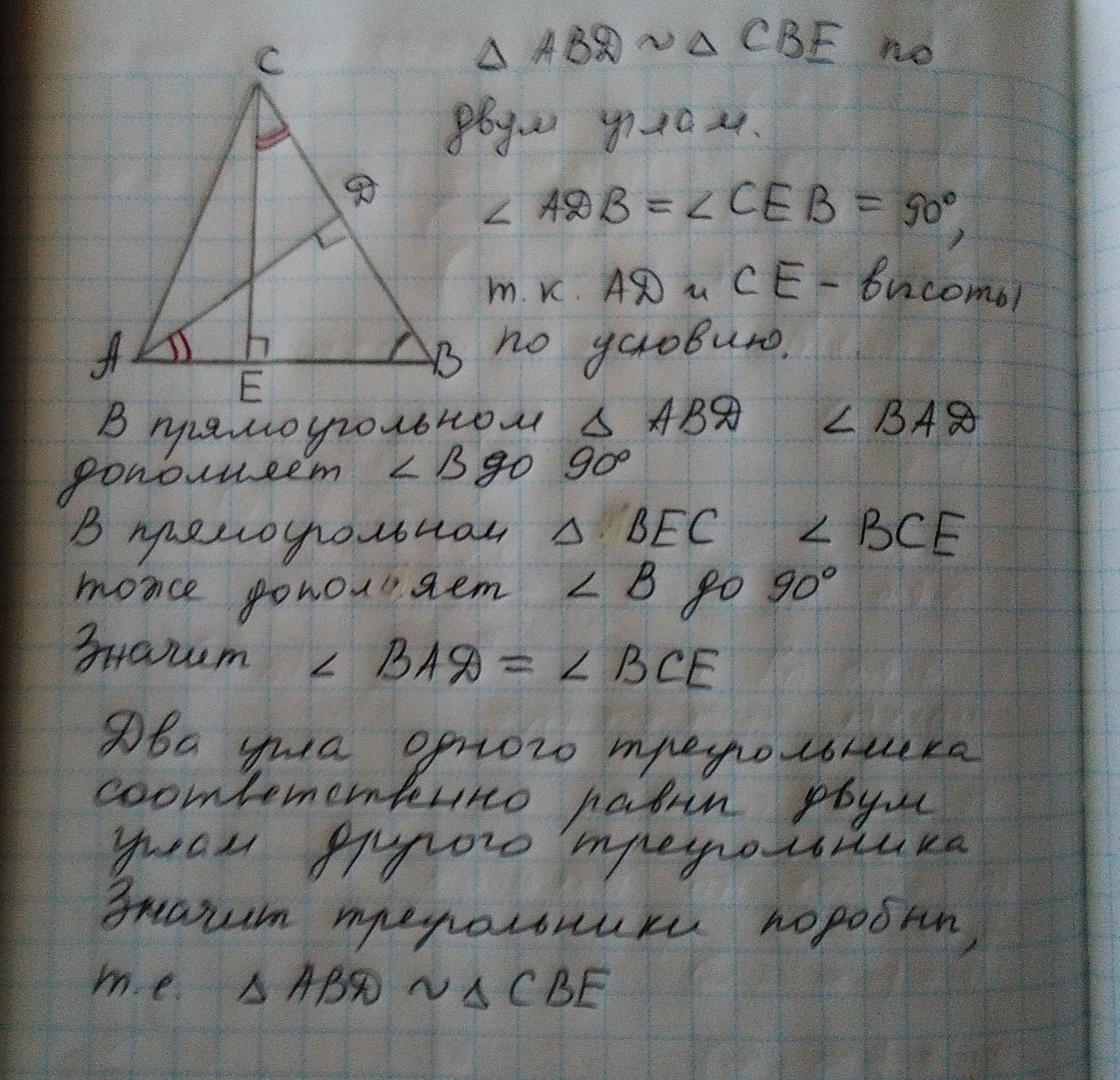 C
Δ ABD ~ Δ CBE по
двум углам.
D
∠ ADB = ∠ CEB = 90°,
т.к. AD и CE – высоты
A
B
по условию.
E
В прямоугольном Δ ABD ∠ BAD
дополняет ∠ B до 90°
В прямоугольном Δ BEC ∠ BCE
тоже дополняет ∠ B до 90°
Значит ∠ BAD = ∠ BCE
Два угла одного треугольника
соответственно равны двум
углам другого треугольника
Значит треугольники подобны,
т.е. Δ ABD ~ Δ CBE